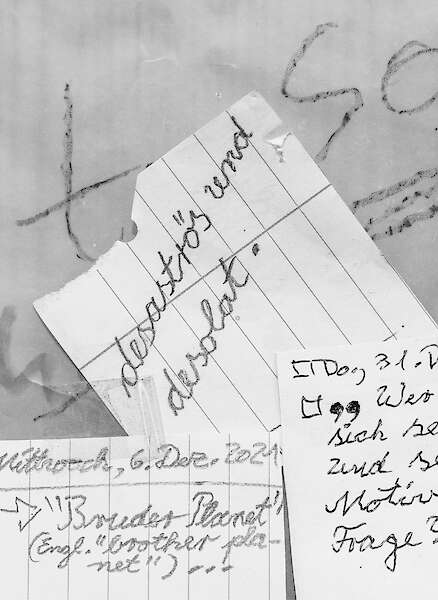 t so
desaströs und
desolat.
Mittwoch, 6. Dez. 2021
"Bruder Planet"
(Engl. "brother pla-
net") ...
Do, 31.
„ Wer
sich se
und se
Motiv
Frage?